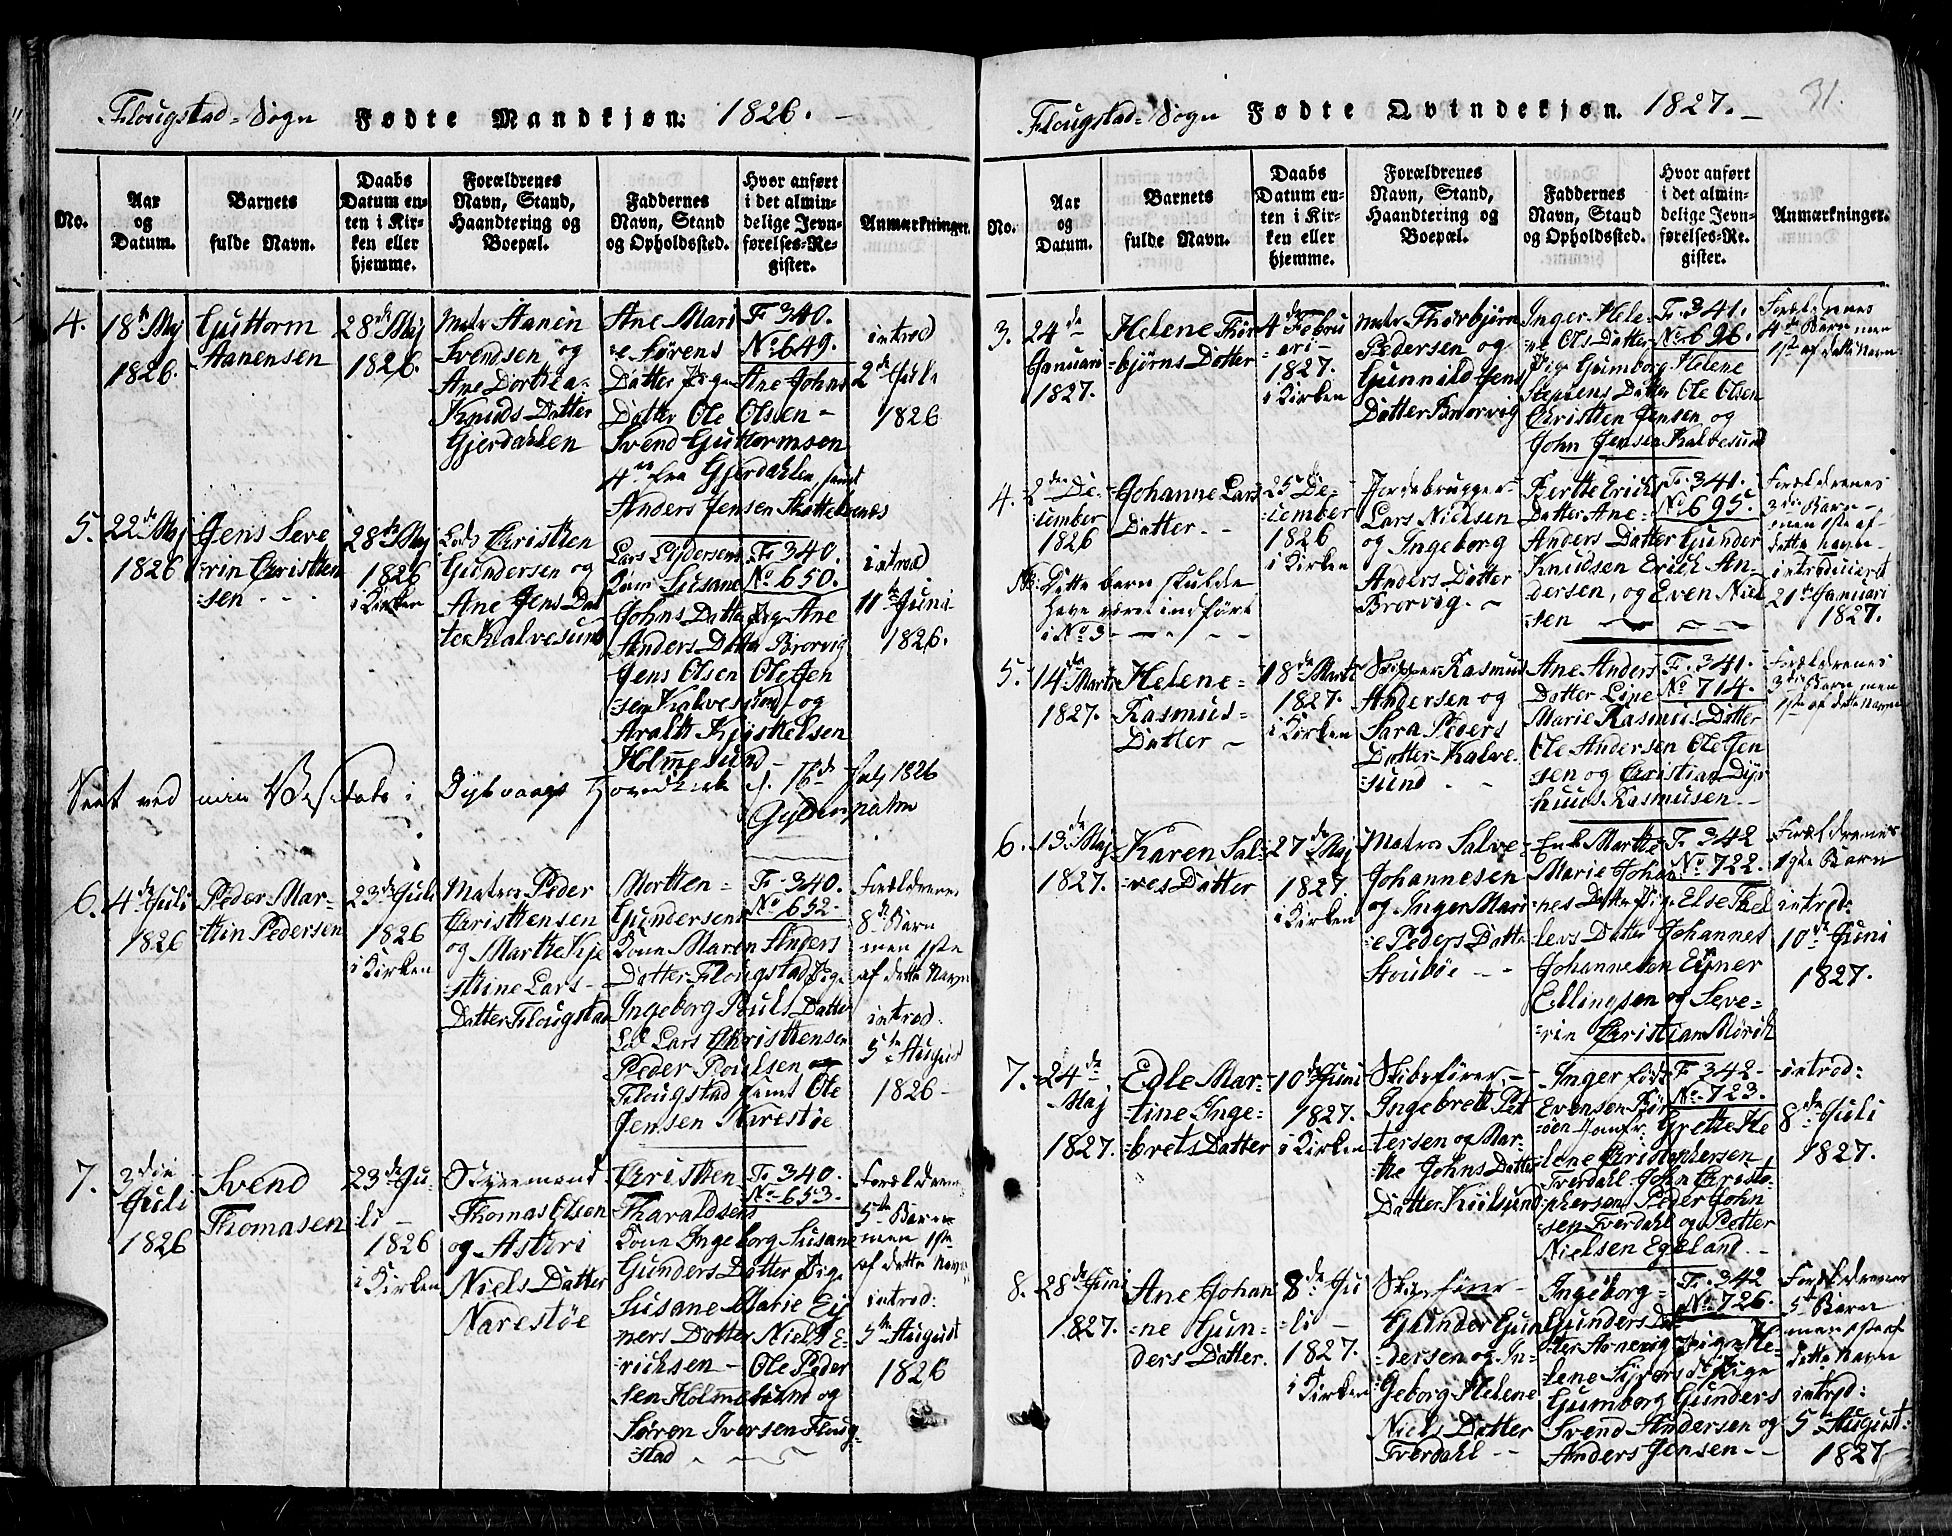 Flougstad-Sogn Fødte Mandkjøn: 1826.
No.
Aar
og
Datum.
Barnets
fulde Navn.
Daabs
Datum en-
ten i Kir-
ken eller
hjemme.
Forældrenes
Navn, Stand,
Haandtering og
Boepæl.
Faddernes
Navn, Stand
og Opholdssted.
Hvor anført
i det almin-
delige Jevn-
førelses-Re-
gister.
Anmærkninger.
4.
18de Maj
1826.
Guttorm
Aanensen
28de Maj
1826.
Matr Aanen
Svendsen og
Ane Dorthea
Knuds Datter
Gjerdahlen
Ane Mari
e Sørens
Datter Pige Ane Johns
Datter Ole Olsen -
Svend Guttormsen
4re fra Gjerdahlen samt
Anders Jensen
F. 340.
No 649.
introd
2de Juli
1826
5.
22de Maj
1826
Jens Seve
-rin Christen
sen
28de Maj
1826
i Kirken
Lods Christen
Gundersen og
Ane Jens Dat
ter Kalvesund
Kone Susane
Johns Datter Pige Ane
Anders Datter Brorvig
Jens Olsen Ole Jen
sen Kalvesund og
Holmesund
F. 340.
No 650.
introd
11te Juni
1826.
Seet ved min Visitats i Dybvaags Hovedkirke d. 16de July 1826
6.
4de Juli
1826
Peder Mar-
thin Pedersen
23de Juli
1826
i Kirken
Matros Peder
Christensen
og Marthe Kje
-stine Lars-
Datter Flougstad
Mortten
Gundersens
Kone Maren Anders
Datter Flougstad Pige
Ingeborg Pouls Datter
Lod. Lars Christensen
Peder Poulsen
Flougstad samt Ole
Jensen Narestøe
F. 340.
No 652.
Forældrenes
8de Barn
men 1ste
af dette Navn
introd:
5te August
1826
7.
3die
Juli
1826
Svend
Thomasen
23de Ju-
li
1826
i Kirken
Styrmand
Thomas Olsen
og Asteri
Niels Datter
Narestøe
Christen
Haraldsens
Kone Ingeborg Susane
Gunders Datter Pige
Susane Marie Ej
ners Datter Niels E-
richsen - Ole Peder
sen Holmesund og
Søren Iversen Floug-
stad
F. 340
No 653.
Forældrenes
5te Barn
men 1ste
af dette Navn
introd:
5te August
1826
31.
Flougstad-Sogn Fødte Qvindekjøn. 1827.
No.
Aar
og
Datum.
Barnets
fulde Navn.
Daabs
Datum en-
ten i Kir-
ken eller
hjemme.
Forældrenes
Navn, Stand,
Haandtering og
Boepæl.
Faddernes
Navn, Stand
og Opholdssted.
Hvor anført
i det almin-
delige Jevn-
førelses-Re-
gister.
Anmærkninger.
3.
24de
Januari
1827.
Helene Thor
-bjørns Datter
4de Febru
-ari-
1827.
i Kirken
Matr Thorbjørn
Pedersen og
Gunnild Jens
Datter Brorvig
Inger Hele-
ne Ols Datter
Pige Gumborg Helene
Stephens Datter Ole Olsen
Christen Jensen og
John Jensen Kalvesund
F. 341.
No 696.
Forældrenes
4de Barn men
1ste af dette Navn
4.
2den De-
cember
1826
Johanne Lars
Datter.
25 De-
cember
1826
i Kirken
Jordebrugger
Lars Nielsen
og Ingeborg
Anders Datter
Brorvig.
Berthe Erichs
Datter Ane
Anders Datter Gunder
Knudsen Erich An-
dersen, og Even Niel
sen
F. 341.
No 695.
Forældrenes
3die Barn
men 1ste af
dette Navn
introduceret
21de Januari
1827.
NB: Dette barn skulde
have været indført
i No 3
5.
14de Marts
1827.
Helene-
Rasmus-
Datter
18de Marts
1827.
i Kirken
Skipper Rasmus
Andersen og
Sara Peders
Datter Kalve-
sund
Ane Anders
Datter Line
Marie Rasmus Datter
Ole Andersen Ole Jen
sen og Christian Dyr
huus Rasmusen
F. 341.
No 714.
Forældrenes
3die Barn men
1ste af dette Navn
6.
13de Maj
1827.
Karen Sal-
ves Datter
27de Maj
1827.
i Kirken
Matros Salve
Johannesen
og Inger Mari
e Peders Datter
Stoubøe
Enke Marthe
Marie Johan
nes Datter Pige Else Thel
levs Datter Johannes
Johannesen Ejner
Ellingsen og Seve-
rin Christian Mörich
F. 342
No 722.
Forældrenes
1ste Barn
introd:
10de Juni
1827.
7.
24de
Maj
1827.
Edle Mar-
tine Inge-
brets Datter
10de Juni
1827.
i Kirken
Skibsfører
Ingebrett Pet
tersen og Mar-
the Johns Datter
Datter Kiilsund
Inger født
Evensen
Jomfr. Grethe He
lene Christophersen
Tverdahl John Christo-
phersen Peder John
sen Tverdahl og Petter
Nielsen Egeland
F. 342
No 723.
introd:
8de Juli
1827.
8.
28de Juni
1827.
Ane Johan
-ne Gun-
ders Datter.
8de Ju
li -
1827.
i Kirken
Skibsfører
Gunder Gun
dersen og In-
geborg Helene
Niels Datter
Tverdahl
Ingeborg
Gunders Dat
ter Arnevig Pige He-
lene Sivers d. Pige
Gumborg Gunders
Svend Andersen og
Anders Jensen
F. 342
No 726.
Forældrenes
5te Barn
men 1ste af
dette Navn
introd:
5te August:
1827